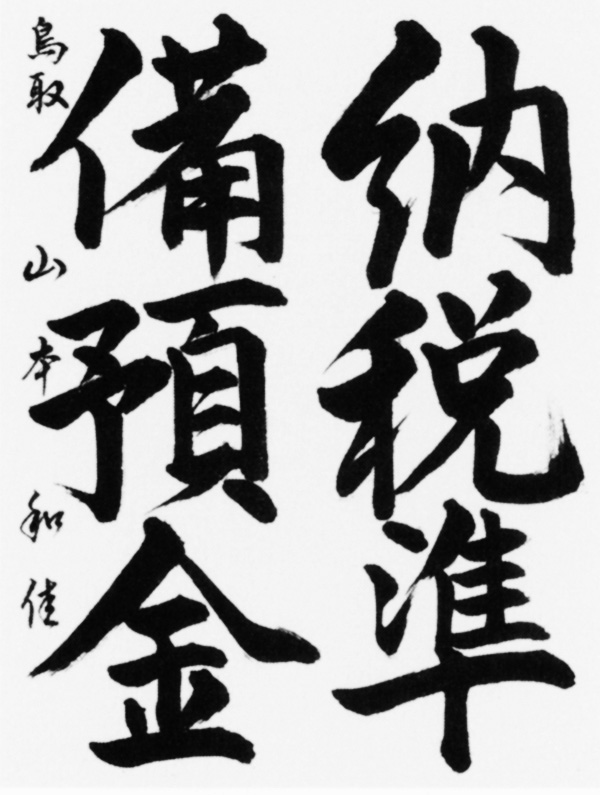 納税準
備預金
鳥取 山本和佳